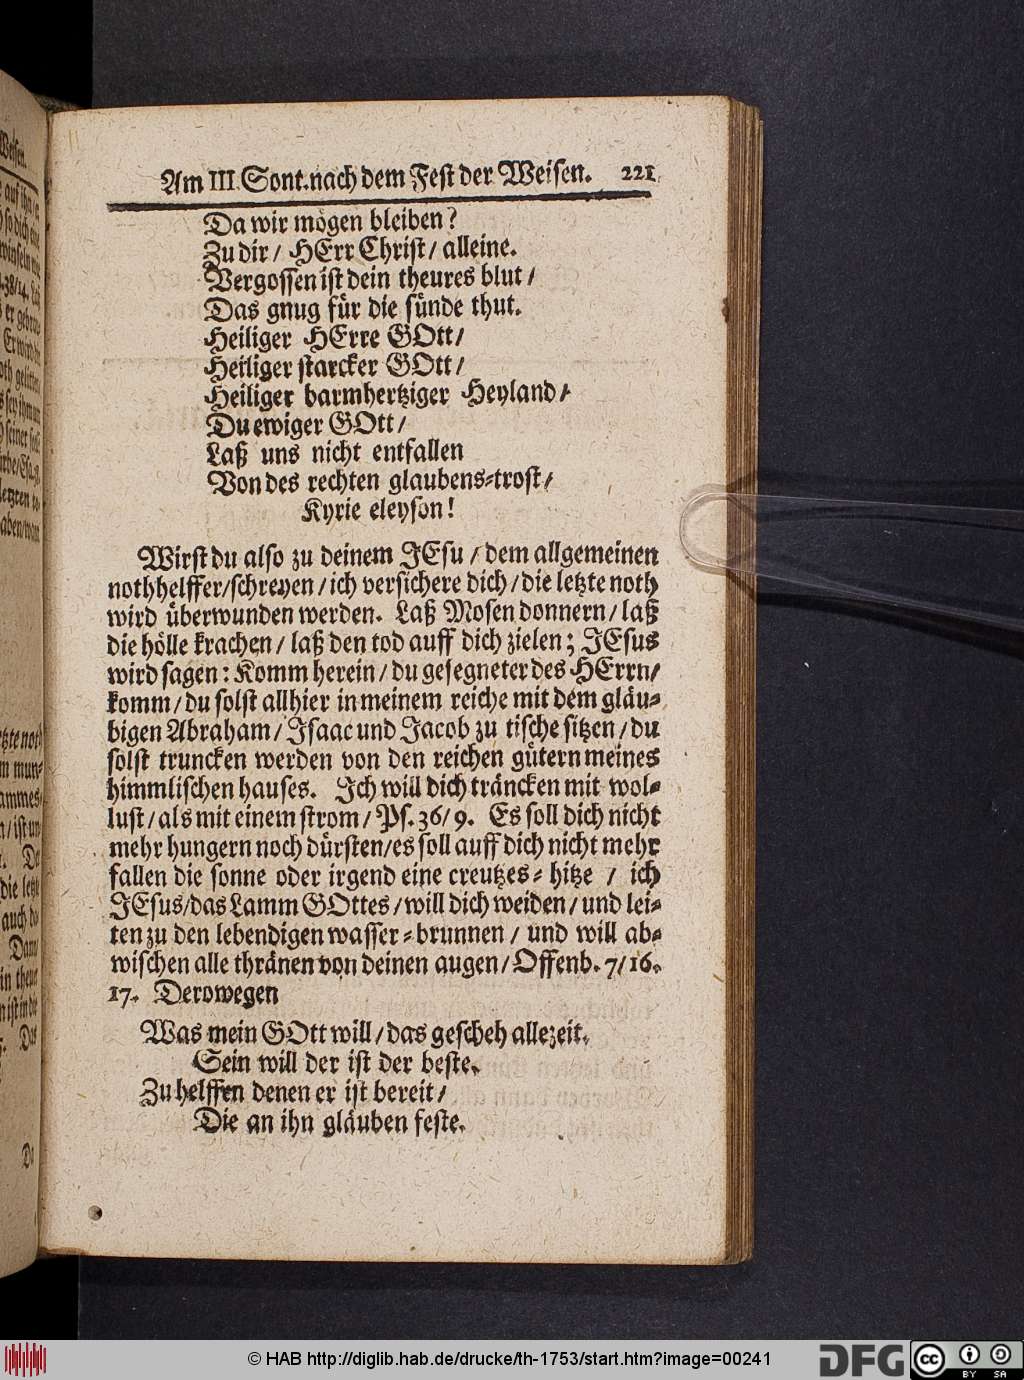 Am III. Sont. nach dem Fest der Weisen. 221
Da wir mögen bleiben?
Zu dir / HErr Christ / alleine.
Vergossen ist dein theures blut /
Das gnug für die sünde thut.
Heiliger HErre GOtt /
Heiliger starcker GOtt /
Heiliger barmhertziger Heyland /
Du ewiger GOtt /
Laß uns nicht entfallen
Von des rechten glaubens-trost /
Kyrie eleyson!
Wirst du also zu deinem JEsu / dem allgemeinen
nothhelffer / schreyen / ich versichere dich / die letzte noth
wird überwunden werden. Laß Mosen donnern / laß
die hölle krachen / laß den tod auff dich zielen; JEsus
wird sagen: Komm herein / du gesegneter des HErrn /
komm / du solst allhier in meinem reiche mit dem gläu-
bigen Abraham / Isaac und Jacob zu tische sitzen / du
solst truncken werden von den reichen gütern meines
himmlischen hauses. Ich will dich träncken mit wol-
lust / als mit einem strom / Ps. 36 / 9. Es soll dich nicht
mehr hungern noch dürsten / es soll auff dich nicht mehr
fallen die sonne oder irgend eine creutzes-hitze / ich
JEsus / das Lamm GOttes / will dich weiden / und lei-
ten zu den lebendigen wasser-brunnen / und will ab-
wischen alle thränen von deinen augen / Offenb. 7 / 16.
17. Derowegen
Was mein GOtt will / das gescheh allezeit.
Sein will der ist der beste.
Zu helffen denen er ist bereit /
Die an ihn gläuben feste.
© HAB http://diglib.hab.de/drucke/th-1753/start.htm?image=00241
DFG
cc BY SA